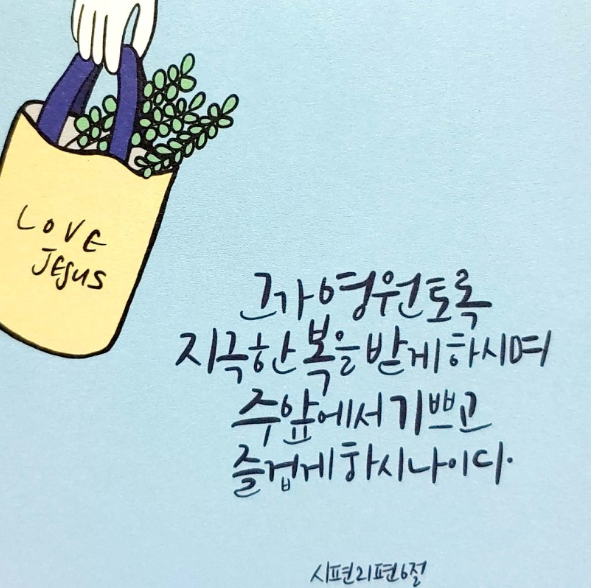 LOVE
JESUS
그가 영원토록
지극한 복을 받게 하시며
주 앞에서 기쁘고
즐겁게 하시나이다.
시편 21편 6절